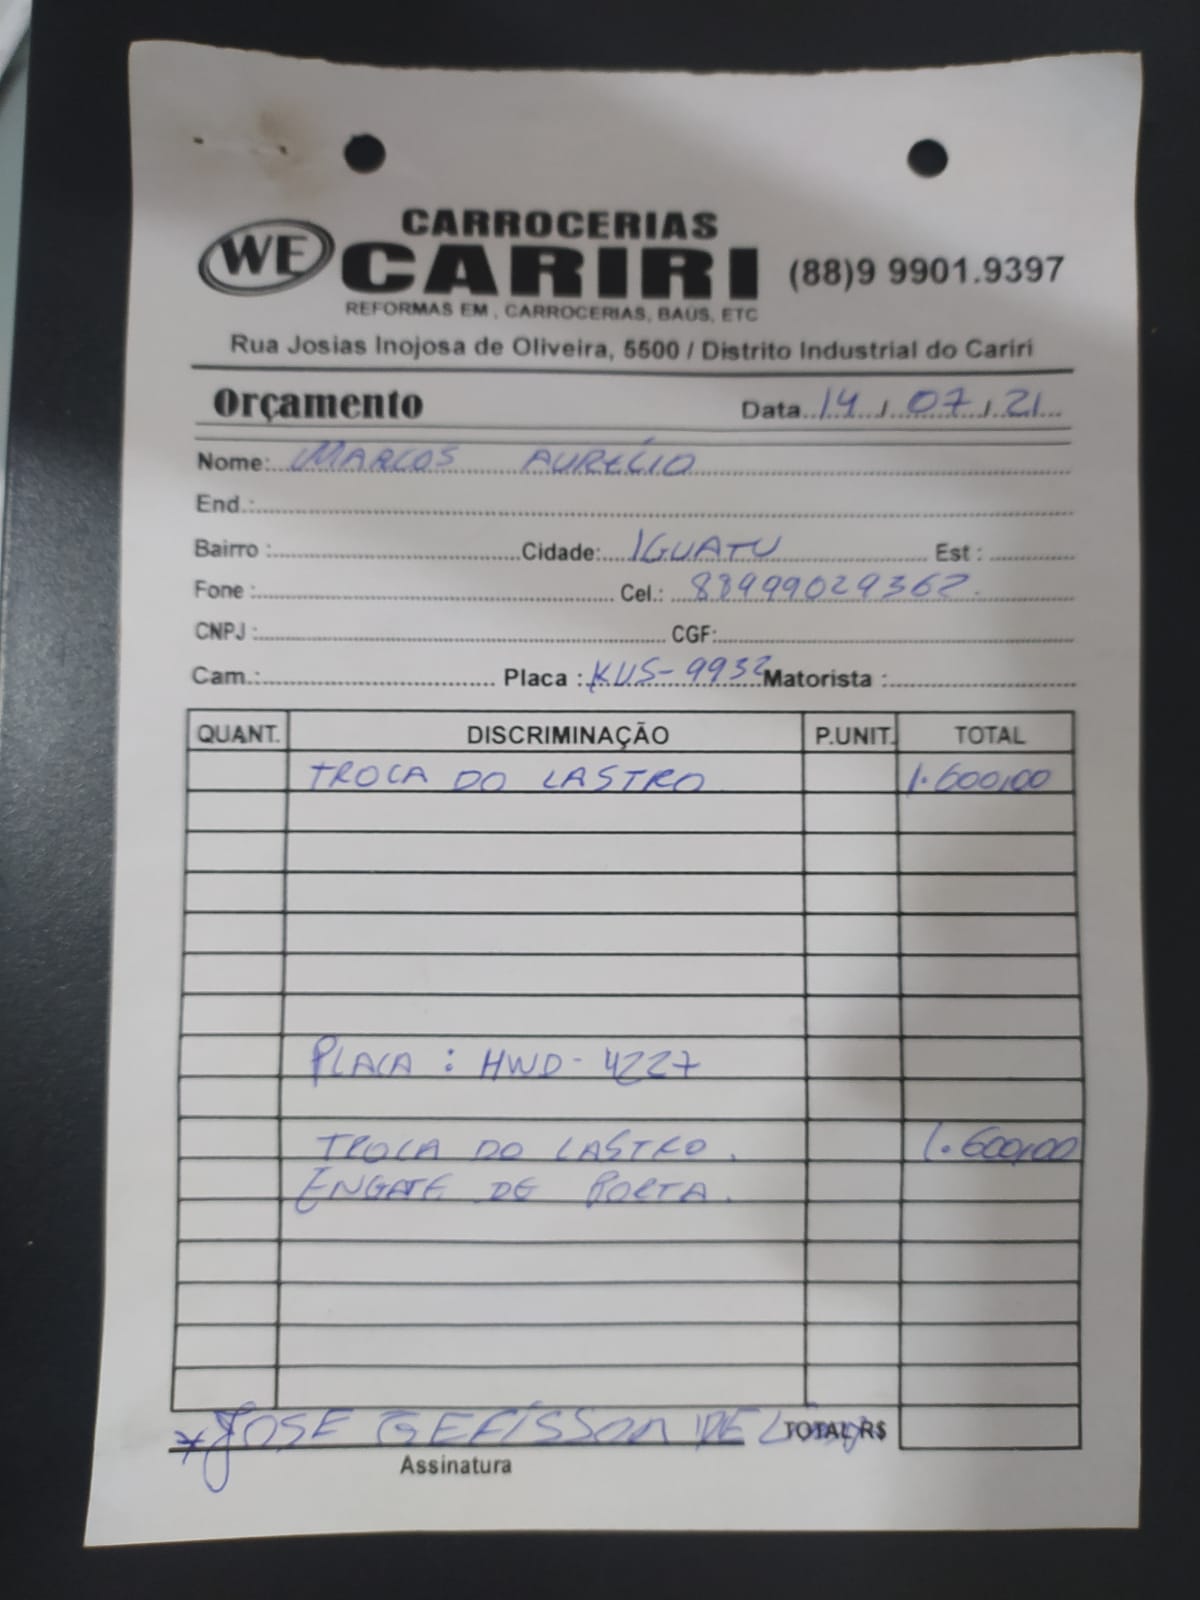 WE CARROCERIAS
CARIRI (88)9 9901.9397
REFORMAS EM , CARROCERIAS, BAÚS, ETC
Rua Josias Inojosa de Oliveira, 5500 / Distrito Industrial do Cariri
Orçamento Data 14 / 07 / 21
Nome: MARCOS AURÉLIO
End.:
Bairro : Cidade: IGUATU Est :
Fone : Cel.: 88999029362.
CNPJ : CGF:
Cam.: Placa : KUS-9932 Matorista :
QUANT. DISCRIMINAÇÃO P.UNIT. TOTAL
TROCA DO LASTRO 1.600,00
PLACA : HWD-4227
TROCA DO LASTRO. 1.600,00
ENGATE DE PORTA.
JOSE DE TOTAL R$
Assinatura